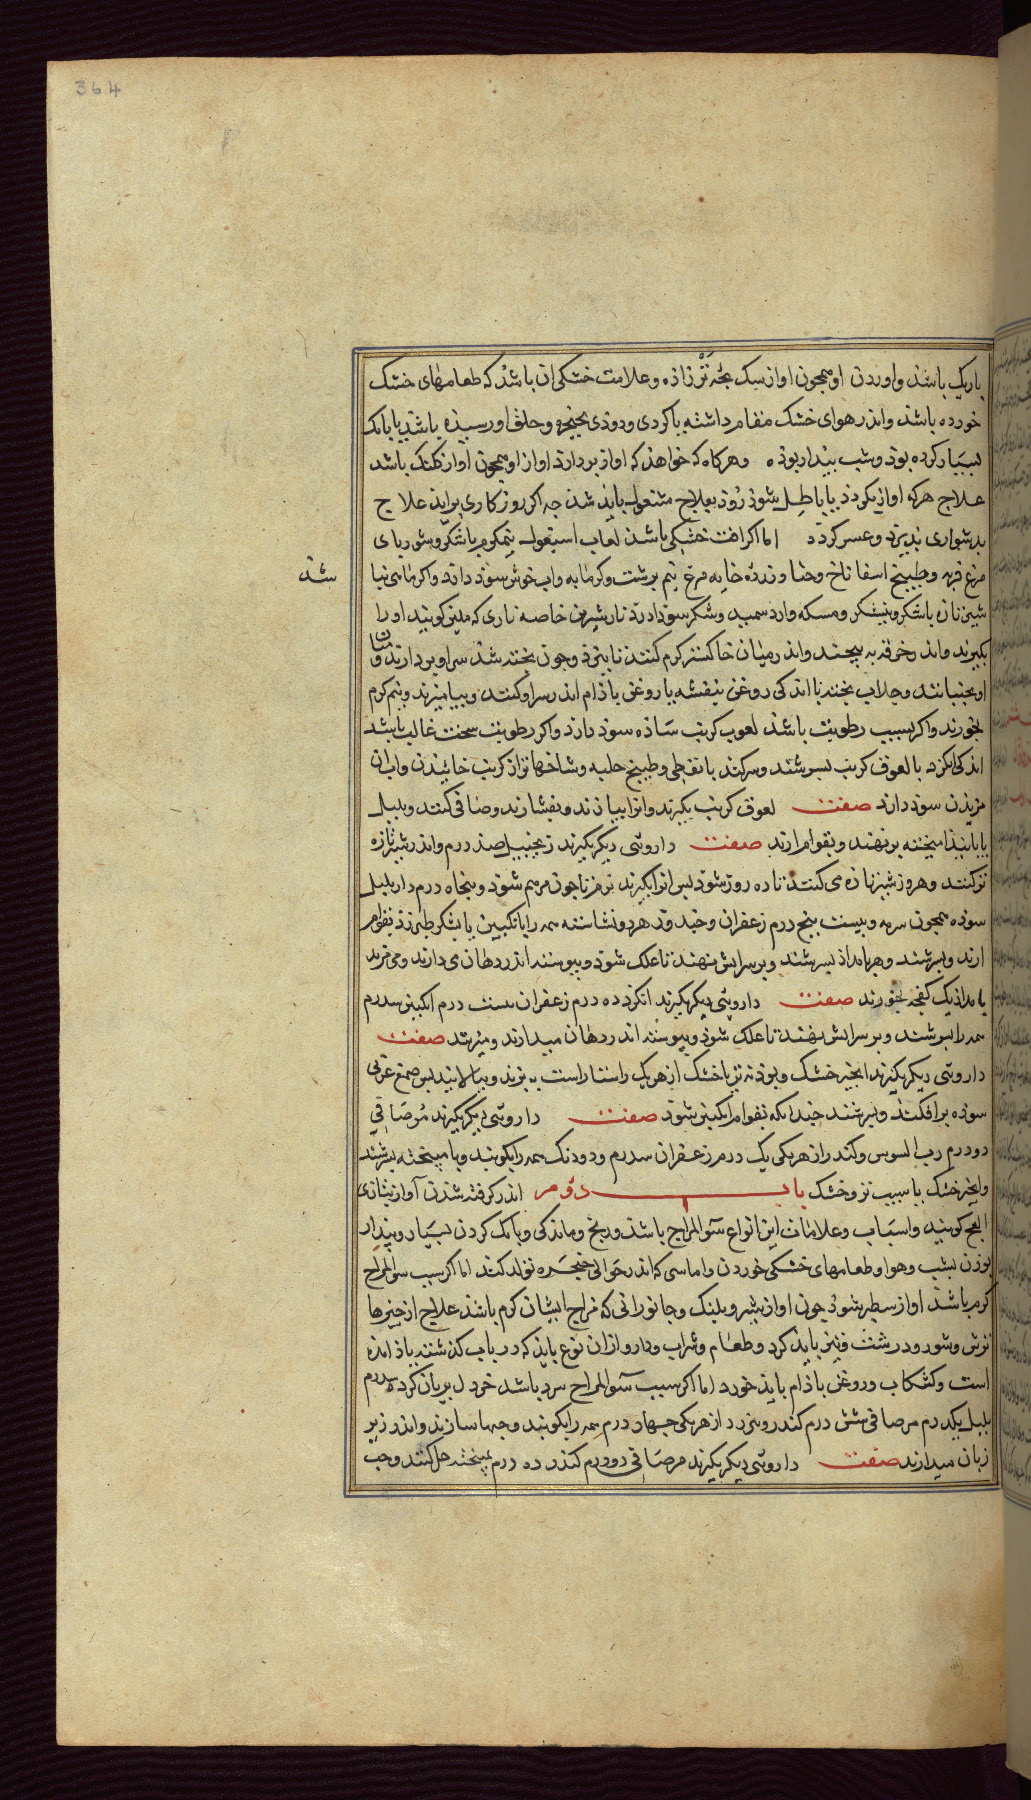 364
باریک باشذ واوردن او همچون اواز سک بچه تر زاذه وعلامت خشکی ان باشذ که طعامهای خشک
خورده باشذ واندر هوای خشک مقام داشته یا کردی ودوذی بحنجره وحلق او رسیذه باشذ یا بانک
بسیار کرده بوذ وشب بیدار بوذه وهرکاه که خواهذ که اواز بردارذ اواز او همچون اواز کلنک باشد
علاج هرکه اواز بکردذ یا باطل شوذ زوذ بعلاج مشغول بایذ شذ جه اکر روزکاری براید علاج
بدشواری پذیرد وعسر کردد اما اکر افت خشکی باشذ لعاب اسبغول نیمکرم با شکر وشوربای
مرغ فربه وطبیخ اسفاناخ وخیار وزرده خایه مرغ نیم برشت وکرمابه واب خوش سوذ دارد واکر تب نیا
شذ
شیر تازه با شکر ونیشکر ومسکه وارد سمید وشکر سوذ دارد نار شیرین خاصه ناری که ملیسی کویند اورا
بکیرند واندر خرقه بپیچند واندر میان خاکستر کرم کنند تا بپزد وجون پخته شذ سر او بردارند و
او بجنبانند وجلاب پخته با اندکی روغن بنفشه یا روغن باذام اندر سر او کنند وبیامیزند ونیم کرم
بخورند واکر بسبب رطوبت باشذ لعوق کرنب ساذه سوذ دارد واکر رطوبت سخت غالب باشد
اندکی انکزد با لعوق کرنب بسرشند وسرکند با نفطی وطبیخ حلبه وشاخها تر از کرنب خائیدن واب ان
مزیذن سوذ دارد صفت لعوق کرنب بکیرند وانرا بپزند وبفشارند وصافی کنند وبلبل
یا پانیذ امیخته برنهند وبقوام ارند صفت داروئی دیکر بکیرند زنجبیل صد درم واندر شیر تازه
تر کنند وهر روز شیر تازه می کنند تا ده روز شوذ پس انرا بکیرند نرم تا جون مرهم شوذ وپنجاه درم دار بلبل
سوده همچون سرمه وبیست پنج درم زعفران وجند هردو نشاسته همه را با انکبین یا بشکر طبرزد بقوام
ارند وبسرشند وهر بامداذ بسرشند وبر سر اتش نهند تا علک شوذ وپیوسته اندر دهان می دارند ومی مزند
بامداذ یک کفچه بخورند صفت داروئی دیکر بکیرند انکزد ده درم زعفران بیست درم انکبین سدرم
همه را بسرشند وبر سر اتش نهند تا علک شوذ وپیوسته اندر دهان میدارند ومیمزند صفت
داروئی دیکر بکیرند انجیر خشک وپوذنه تر یا خشک از هر یک راستاراست بپزند وبپالایند پس صمغ عربی
سوده برافکنند وبسرشند جندانکه بقوام انکبین شوذ صفت داروئی دیکر بکیرند مر صافی
دو درم رب السوس وکندر از هریکی یک درم زعفران سدرم ودودنک همه را بکوبند وبا میپخته بسرشند
وانجیر خشک با سپیب تر وخشک باب دوم اندر کرفته شذن آواز بتازی
البح کویند واسباب وعلامات این انواع سوء المزاج باشذ ورنج وماندکی وبانک کردن بسیار وبیدار
بوذن بشب وهوا وطعامهای خشکی خوردن واماسی که اندر حوالی حنجره تولد کند اما اکر سبب سوء المزاج
کرم باشذ اواز سطبر شوذ جون اواز شیر وپلنک وجانورانی که مزاج ایشان کرم باشذ علاج از جیزها
ترش وشور ودرشت وتیز بایذ کرد وطعام وشراب ودارو از ان نوع بایذ که در باب کذشته یاذ امذه
است وکشکاب وروغن باذام بایذ خورد اما اکر سبب سوء المزاج سرد باشد خردل بریان کرده سدرم
بلبل یکدرم مر صافی شش درم کندر وبیرزد از هریکی جهار درم همه را بکوبند وحبها سازند واندر زیر
زبان میدارند صفت داروئی دیکر بکیرند مر صافی دو درم کندر ده درم بمیپخته حل کنند وحب